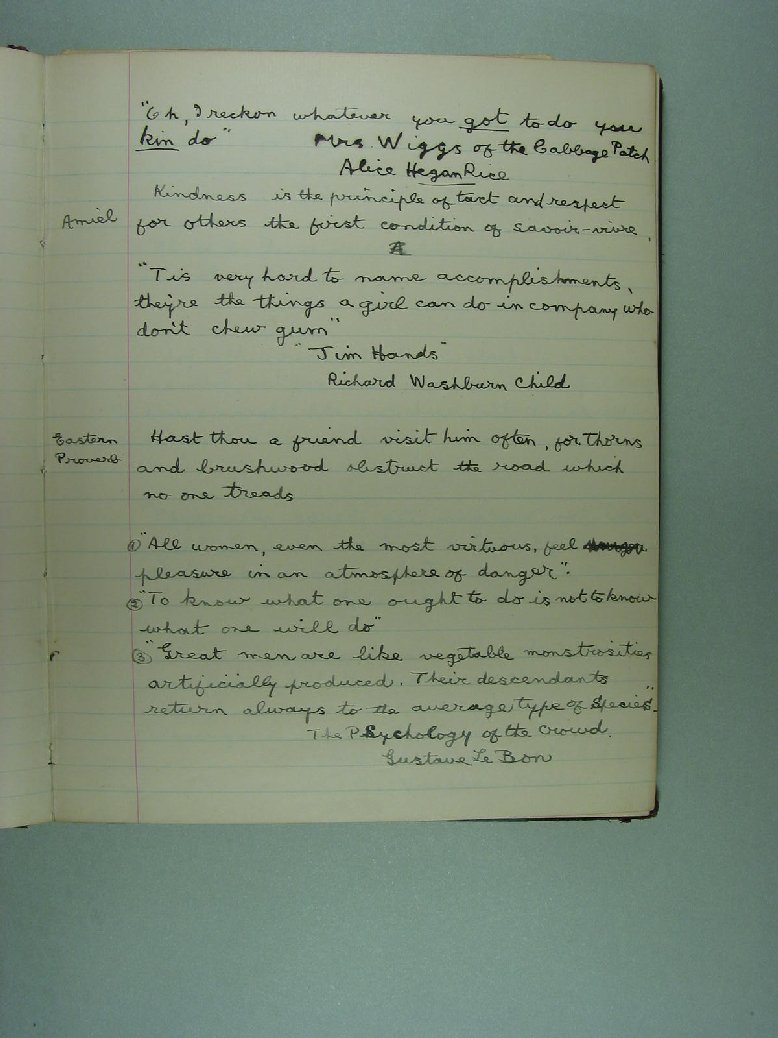 "Oh, I reckon whatever you got to do you
kin do"  Mrs. Wiggs of the Cabbage Patch
Alice Hegan Rice
Kindness is the principle of tact and respect
Amiel for others the first condition of savoir-vivre.
A
"Tis very hard to name accomplishments,
they're the things a girl can do in company who
don't chew gum"
"Jim Hands"
Richard Washburn Child
Eastern Hast thou a friend visit him often, for Thorns
Proverb and brushwood obstruct the road which
no one treads
① "All women, even the most virtuous, feel
pleasure in an atmosphere of danger".
② "To know what one ought to do is not to know
what one will do"
③ "Great men are like vegetable monstrosities
artificially produced. Their descendants
return always to the average type of Species".
The Psychology of the Crowd.
Gustave Le Bon